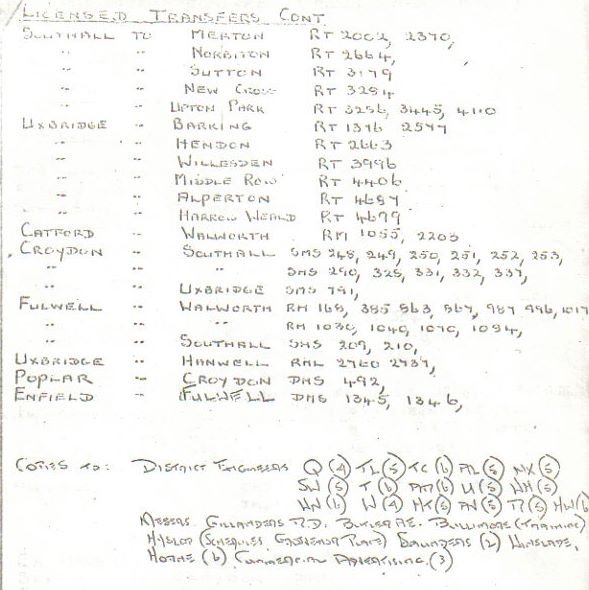 LICENSED TRANSFERS CONT.
SOUTHALL TO MERTON RT 2002, 2370,
" " NORBITON RT 2664,
" " SUTTON RT 3179
" " NEW CROSS RT 3284
" " UPTON PARK RT 3256, 3445, 4110
UXBRIDGE " BARKING RT 1376 2577
" " HENDON RT 2663
" " WILLESDEN RT 3996
" " MIDDLE ROW RT 4406
" " ALPERTON RT 4687
" " HARROW WEALD RT 4679
CATFORD " WALWORTH RM 1055, 2203
CROYDON " SOUTHALL SMS 248, 249, 250, 251, 252, 253,
" " SMS 290, 328, 331, 332, 337,
" UXBRIDGE SMS 791,
FULWELL " WALWORTH RM 168, 385 863, 867, 987 996, 1017
" " RM 1030, 1040, 1070, 1084,
" SOUTHALL SMS 209, 210,
UXBRIDGE " HANWELL RML 2760 2737,
POPLAR " CROYDON DMS 492,
ENFIELD " FULWELL DMS 1345, 1346,
COPIES TO: DISTRICT ENGINEERS Q (4) TL (5) TC (6) AL (5) NX (5)
SW (5) T (6) PM (6) U (5) WH (5)
WN (6) W (4) HT (5) AV (5) R (5) HW (6)
MESSRS. GILLANDERS R.D. BUTLER A.E. BULLIMORE (TRAINING)
HYSLOP (SCHEDULES GROSVENOR PLACE) SAUNDERS (2) WINSLADE,
HORNE (6) COMMERCIAL ADVERTISING. (3)